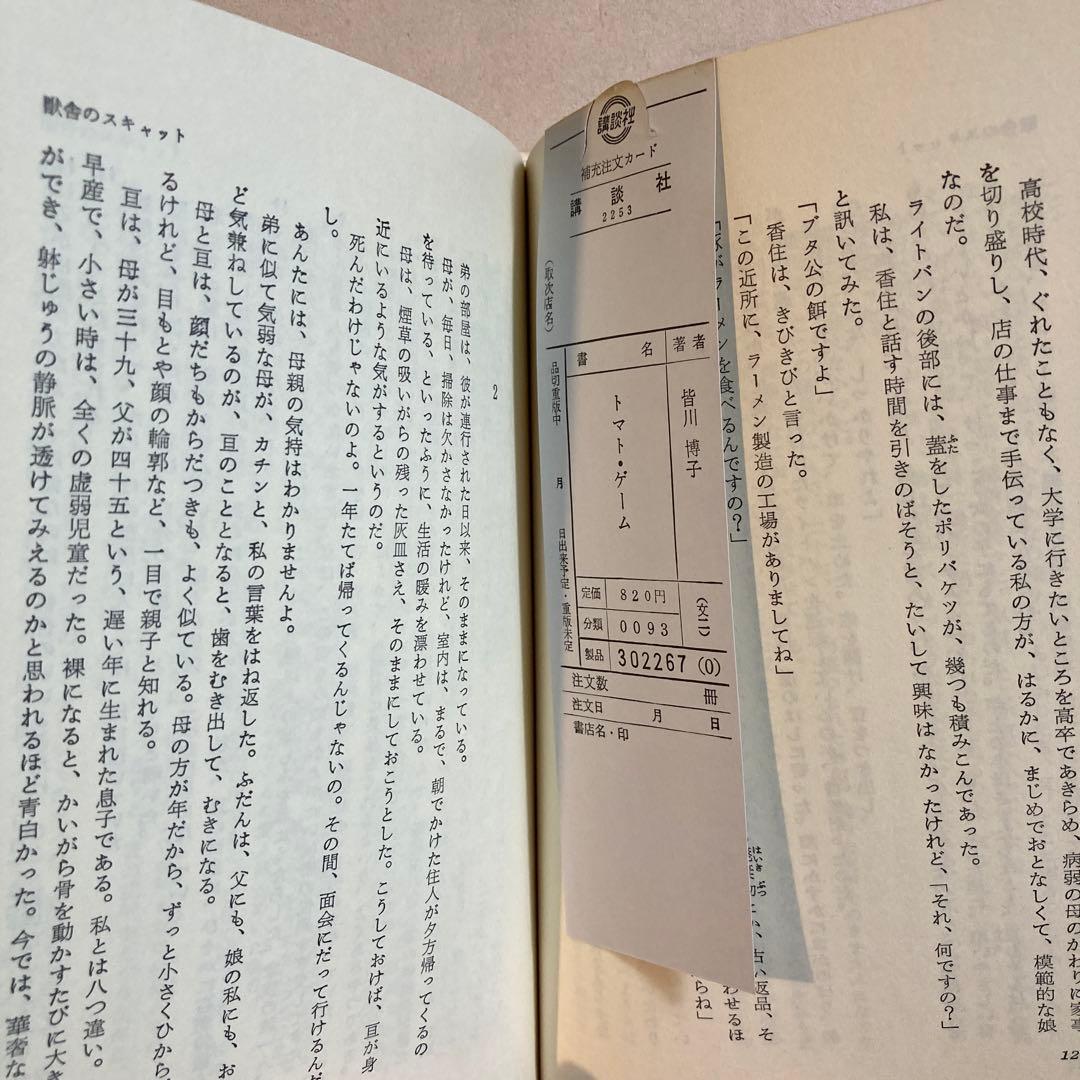 高校時代、ぐれたこともなく、大学に行きたいところを高卒であきらめ、病弱の母のかわりに家事
を切り盛りし、店の仕事まで手伝っている私の方が、はるかに、まじめでおとなしくて、模範的な娘
なのだ。
ライトバンの後部には、蓋をしたポリバケツが、幾つも積みこんであった。
ふた
私は、香住と話す時間を引きのばそうと、たいして興味はなかったけれど、「それ、何ですの？」
と訊いてみた。
「ブタ公の餌ですよ」
香住は、きびきびと言った。
「この近所に、ラーメン製造の工場がありましてね」
「豚が、ラーメンを食べるんですの？」
はいきぶつ
古い返品、そ
わせるほ
らね」
12
講談社
補充注文カード
講談社
2253
（取次店名）
著者
皆川 博子
（文二）
書名
トマト・ゲーム
定価 820円
分類 0093
製品 302267 (0)
品切重版中 月 日出来予定・重版未定
注文数 冊
注文日 月 日
書店名・印
獣舎のスキャット
2
弟の部屋は、彼が連行された日以来、そのままになっている。
母が、毎日、掃除は欠かさなかったけれど、室内は、まるで、朝でかけた住人が夕方帰ってくるの
を待っている、といったふうに、生活の暖みを漂わせている。
母は、煙草の吸いがらの残った灰皿さえ、そのままにしておこうとした。こうしておけば、亘が身
近にいるような気がするというのだ。
死んだわけじゃないのよ。一年たてば帰ってくるんじゃないの。その間、面会にだって行けるんだ
し。
あんたには、母親の気持はわかりませんよ。
弟に似て気弱な母が、カチンと、私の言葉をはね返した。ふだんは、父にも、娘の私にも、お
ど気兼ねしているのが、亘のこととなると、歯をむき出して、むきになる。
母と亘は、顔だちもからだつきも、よく似ている。母の方が年だから、ずっと小さくひから
るけれど、目もとや顔の輪郭など、一目で親子と知れる。
亘は、母が三十九、父が四十五という、遅い年に生まれた息子である。私とは八つ違い。
早産で、小さい時は、全くの虚弱児童だった。裸になると、かいがら骨を動かすたびに大き
ができ、躰じゅうの静脈が透けてみえるのかと思われるほど青白かった。今では、華奢な